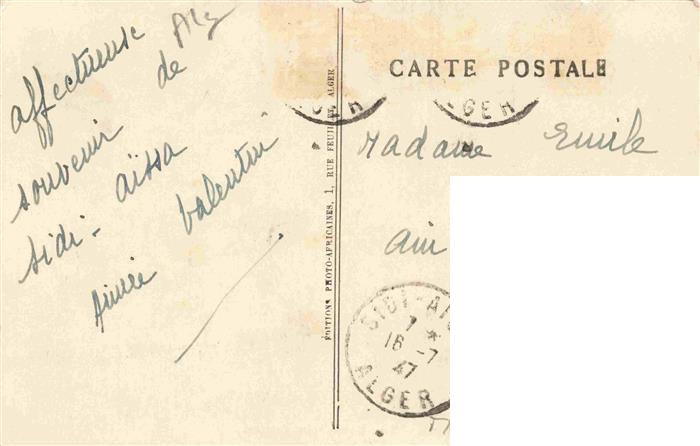 affectueuse
souvenir de
sidi-aïssa
Aimée Valentini
Alg
ÉDITIONS PHOTO-AFRICAINES, 1, RUE FEUILLET, ALGER
CARTE POSTALE
ALGER
ALGER
Madame Emile
Ain
SIDI-AIS
7 *
16 -7
47
ALGER